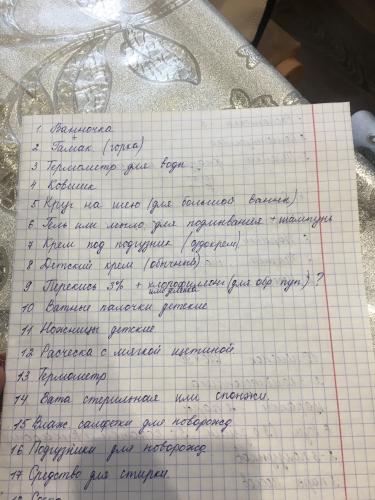 1 Ванночка
+
2 Гамак (горка)
3 Термометр для воды
4 Ковшик
5 Круг на шею (для большой ванны)
6 Гель или мыло для подмывания + шампунь
7 Крем под подгузник (судокрем)
8 Детский крем (обычный)
9 Перекись 3% + хлорофиллипт (для обр. пуп.) ?
или зеленка
10 Ватные палочки детские
11 Ножницы детские
12 Расческа с мягкой щетиной.
13 Термометр
14 Вата стерильная или спонжи.
15 Влаж. салфетки для поворожд
16 Подгузники для новорожд
17 Средство для стирки.